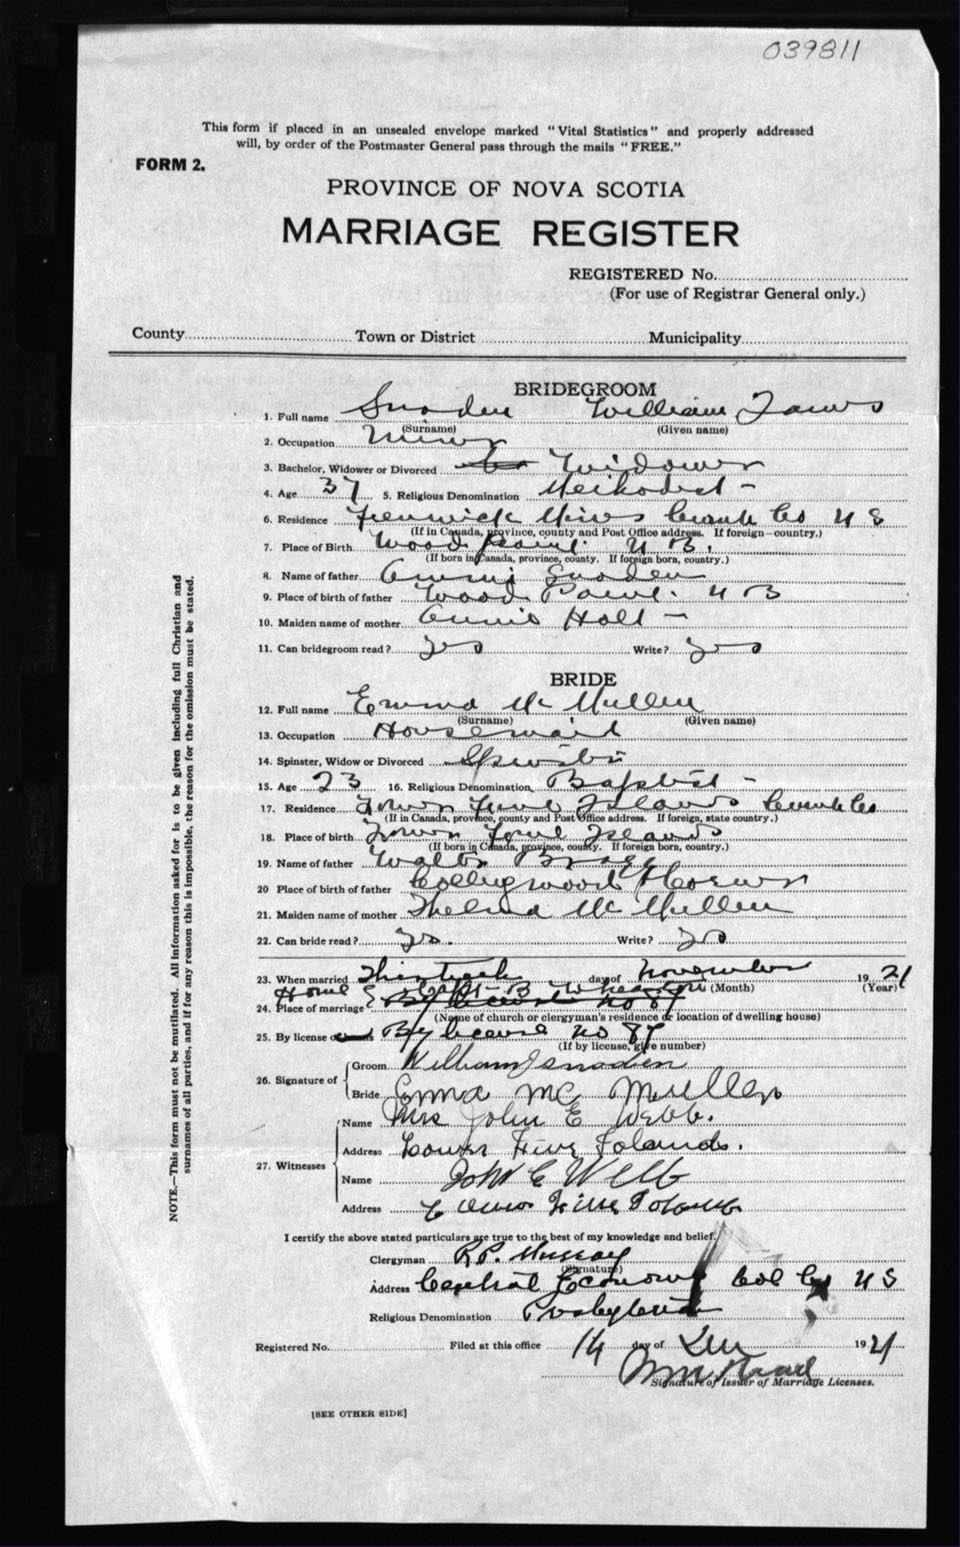 039811
This form if placed in an unsealed envelope marked "Vital Statistics" and properly addressed
will, by order of the Postmaster General pass through the mails "FREE."
FORM 2.
PROVINCE OF NOVA SCOTIA
MARRIAGE REGISTER
REGISTERED No.
(For use of Registrar General only.)
County Town or District Municipality
BRIDEGROOM
1. Full name Snoden William James
(Surname) (Given name)
2. Occupation Miner
3. Bachelor, Widower or Divorced Widower
4. Age 37 5. Religious Denomination Methodist -
6. Residence Fenwick Mines Cumb Co N S
(If in Canada, province, county and Post Office address. If foreign—country.)
7. Place of Birth Wood Point N B.
(If born in Canada, province, county. If foreign born, country.)
8. Name of father Ammi Snoden
9. Place of birth of father Wood Point. N B
10. Maiden name of mother Annie Holt -
11. Can bridegroom read? yes Write? yes
BRIDE
12. Full name Emma Mc Mullen
(Surname) (Given name)
13. Occupation Housemaid
14. Spinster, Widow or Divorced Spinster
15. Age 23 16. Religious Denomination Baptist -
17. Residence Lower Five Islands
(If in Canada, province, county and Post Office address. If foreign, state country.)
18. Place of birth Lower Five Islands
(If born in Canada, province, county. If foreign born, country.)
19. Name of father Walter
20 Place of birth of father Collingwood
21. Maiden name of mother Thelma Mc Mullen
22. Can bride read? yes. Write? yes
23. When married Thirtieth day of November 1921
(Month) (Year)
Home
24. Place of marriage
(Name of church or clergyman's residence or location of dwelling house)
25. By license or By license no 87
(If by license, give number)
26. Signature of Groom William J snoden
Bride Emma Mc Mullen
27. Witnesses Name Mrs John E Webb.
Address Lower Five Islands.
Name John E Webb
Address Lower Five Islands
I certify the above stated particulars are true to the best of my knowledge and belief.
Clergyman R.P. Murray
(Signature)
Address Central Economy Col Co N S
Religious Denomination Presbyterian
Registered No. Filed at this office 14 day of Dec 1921
Signature of Issuer of Marriage Licenses.
[SEE OTHER SIDE]
NOTE.—This form must not be mutilated. All information asked for is to be given including full Christian and
surnames of all parties, and if for any reason this is impossible, the reason for the omission must be stated.